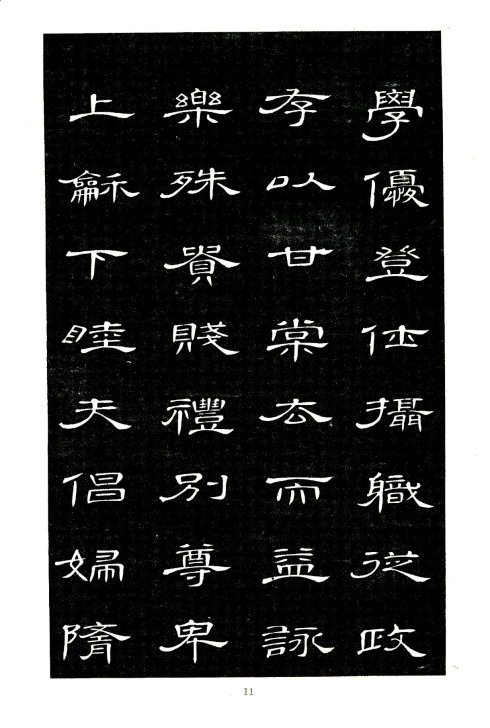 學優登仕攝職從政
存以甘棠去而益詠
樂殊貴賤禮別尊卑
上龢下睦夫倡婦隨
11